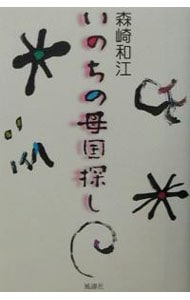 森崎和江
いのちの母国探し
風濤社